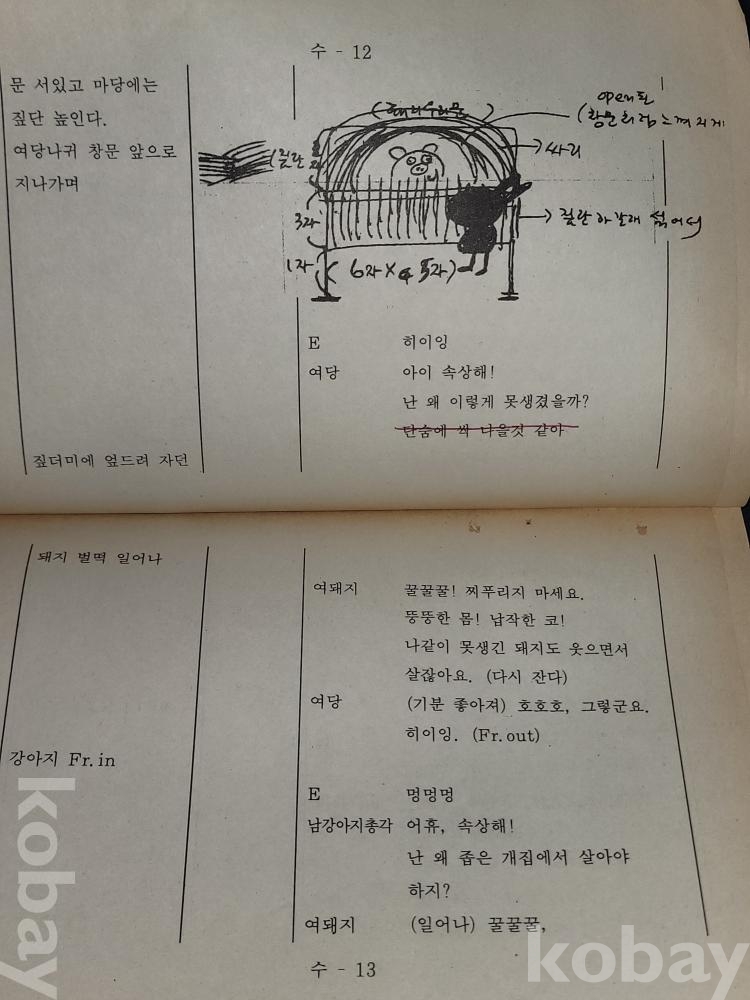 수 - 12
문 서있고 마당에는
짚단 높인다.
여당나귀 창문 앞으로
지나가며
open된
싸리
3자
1자
(6자×
E 히이잉
여당 아이 속상해!
난 왜 이렇게 못생겼을까?
단숨에 싹 나을것 같아
짚더미에 엎드려 자던
돼지 벌떡 일어나
여돼지 꿀꿀꿀! 찌푸리지 마세요.
뚱뚱한 몸! 납작한 코!
나같이 못생긴 돼지도 웃으면서
살잖아요. (다시 잔다)
여당 (기분 좋아져) 호호호, 그렇군요.
히이잉. (Fr.out)
강아지 Fr.in
E 멍멍멍
남강아지총각 어휴, 속상해!
난 왜 좁은 개집에서 살아야
하지?
여돼지 (일어나) 꿀꿀꿀,
수 - 13
kobay
kobay